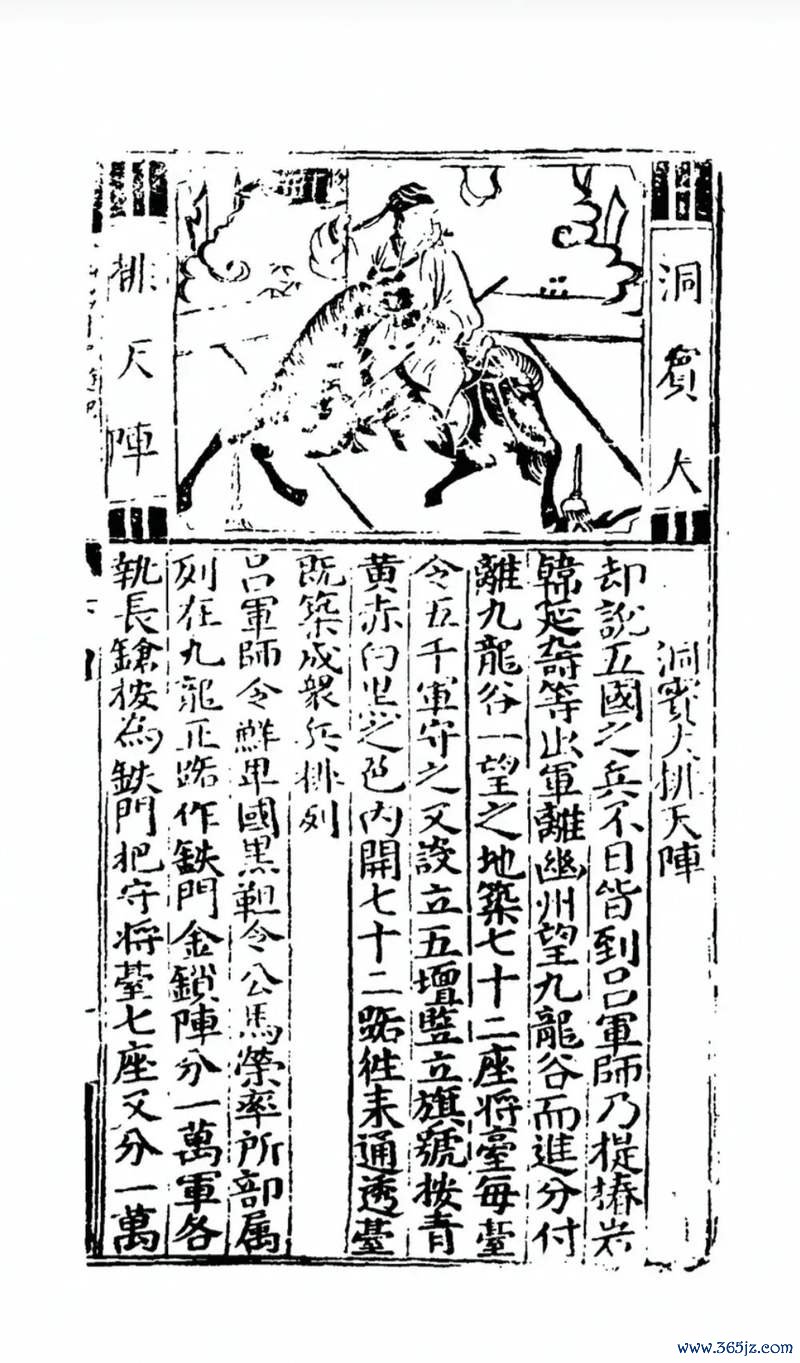 洞賓大
排天陣
洞賓大排天陣
却說五國之兵不日皆到呂軍師乃提椿岩
韓延壽等出軍離幽州望九龍谷而進分付
離九龍谷一望之地築七十二座將臺每臺
令五千軍守之又設立五壇豎立旗號按青
黃赤白黑之色內開七十二路徃來通透臺
既築成衆兵排列
呂軍師令鮮卑國黑靼令公馬榮率所部属
列在九龍正路作鉄門金鎖陣分一萬軍各
執長鎗按為鉄門把守將臺七座又分一萬
www.365jz.com